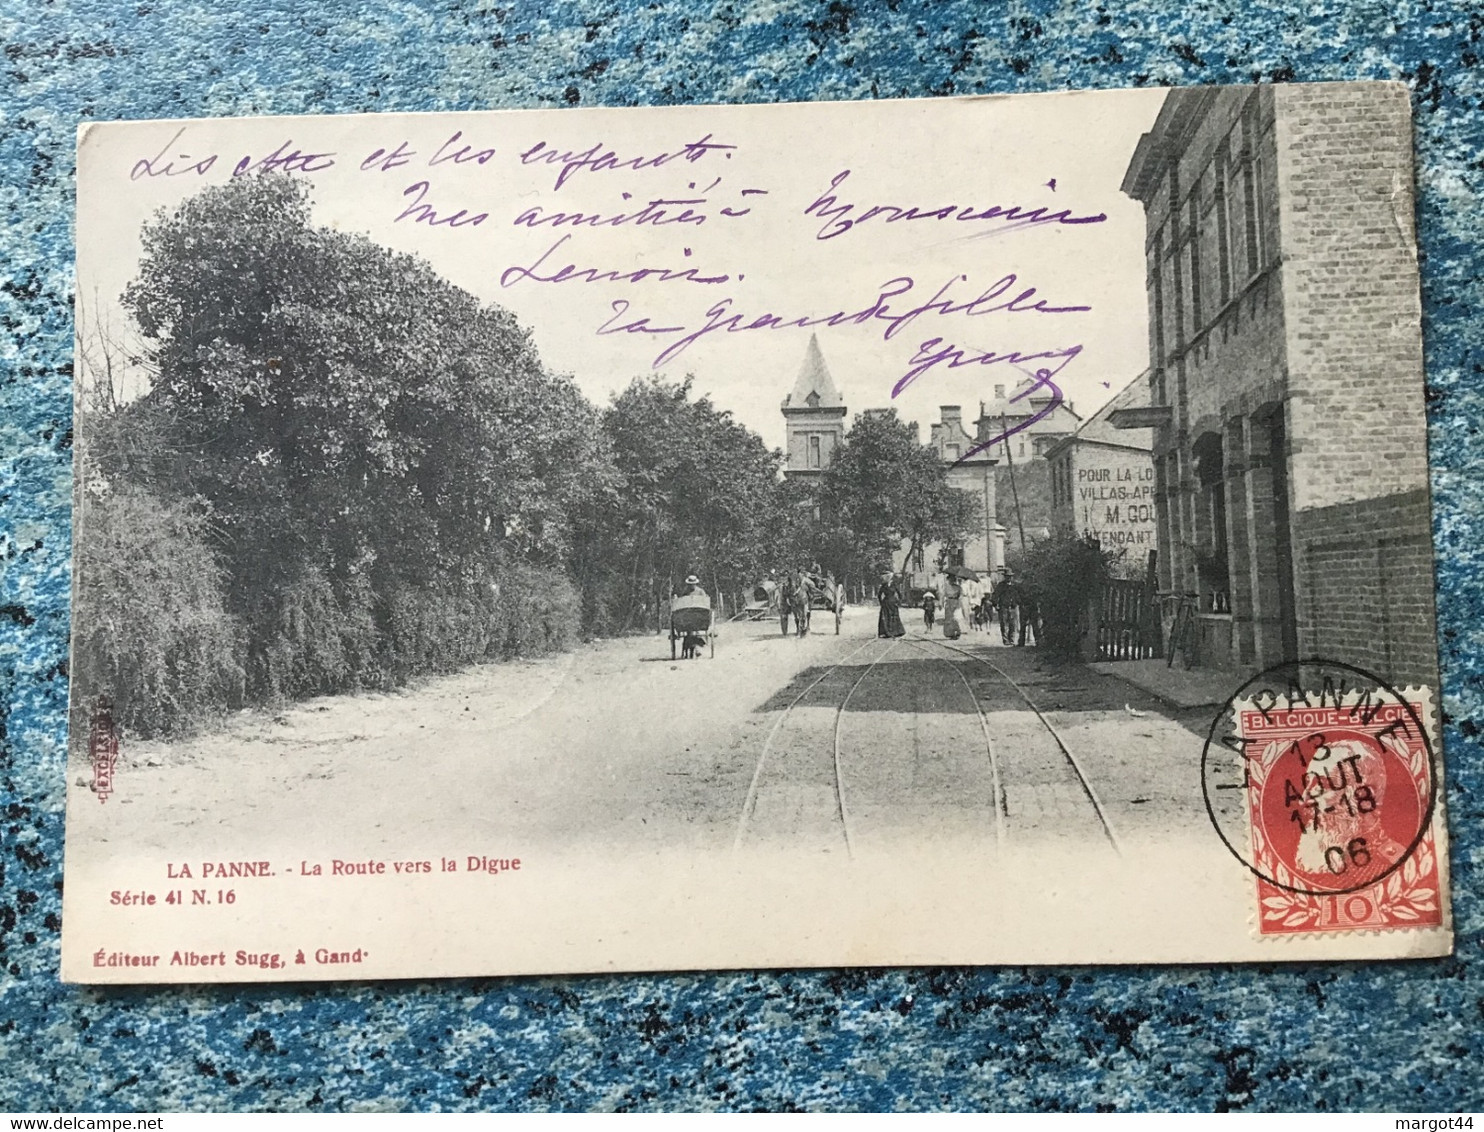 et les enfants.
Mes amitiés à Monsieur
Lenoir.
grande fille
POUR LA LO
VILLAS-APP
M. GOU
TENDANT
EXCELSIOR
LA PANNE
13
AOUT
17-18
06
BELGIQUE-BELGIË
10
LA PANNE. - La Route vers la Digue
Série 41 N. 16
Éditeur Albert Sugg, à Gand
margot44